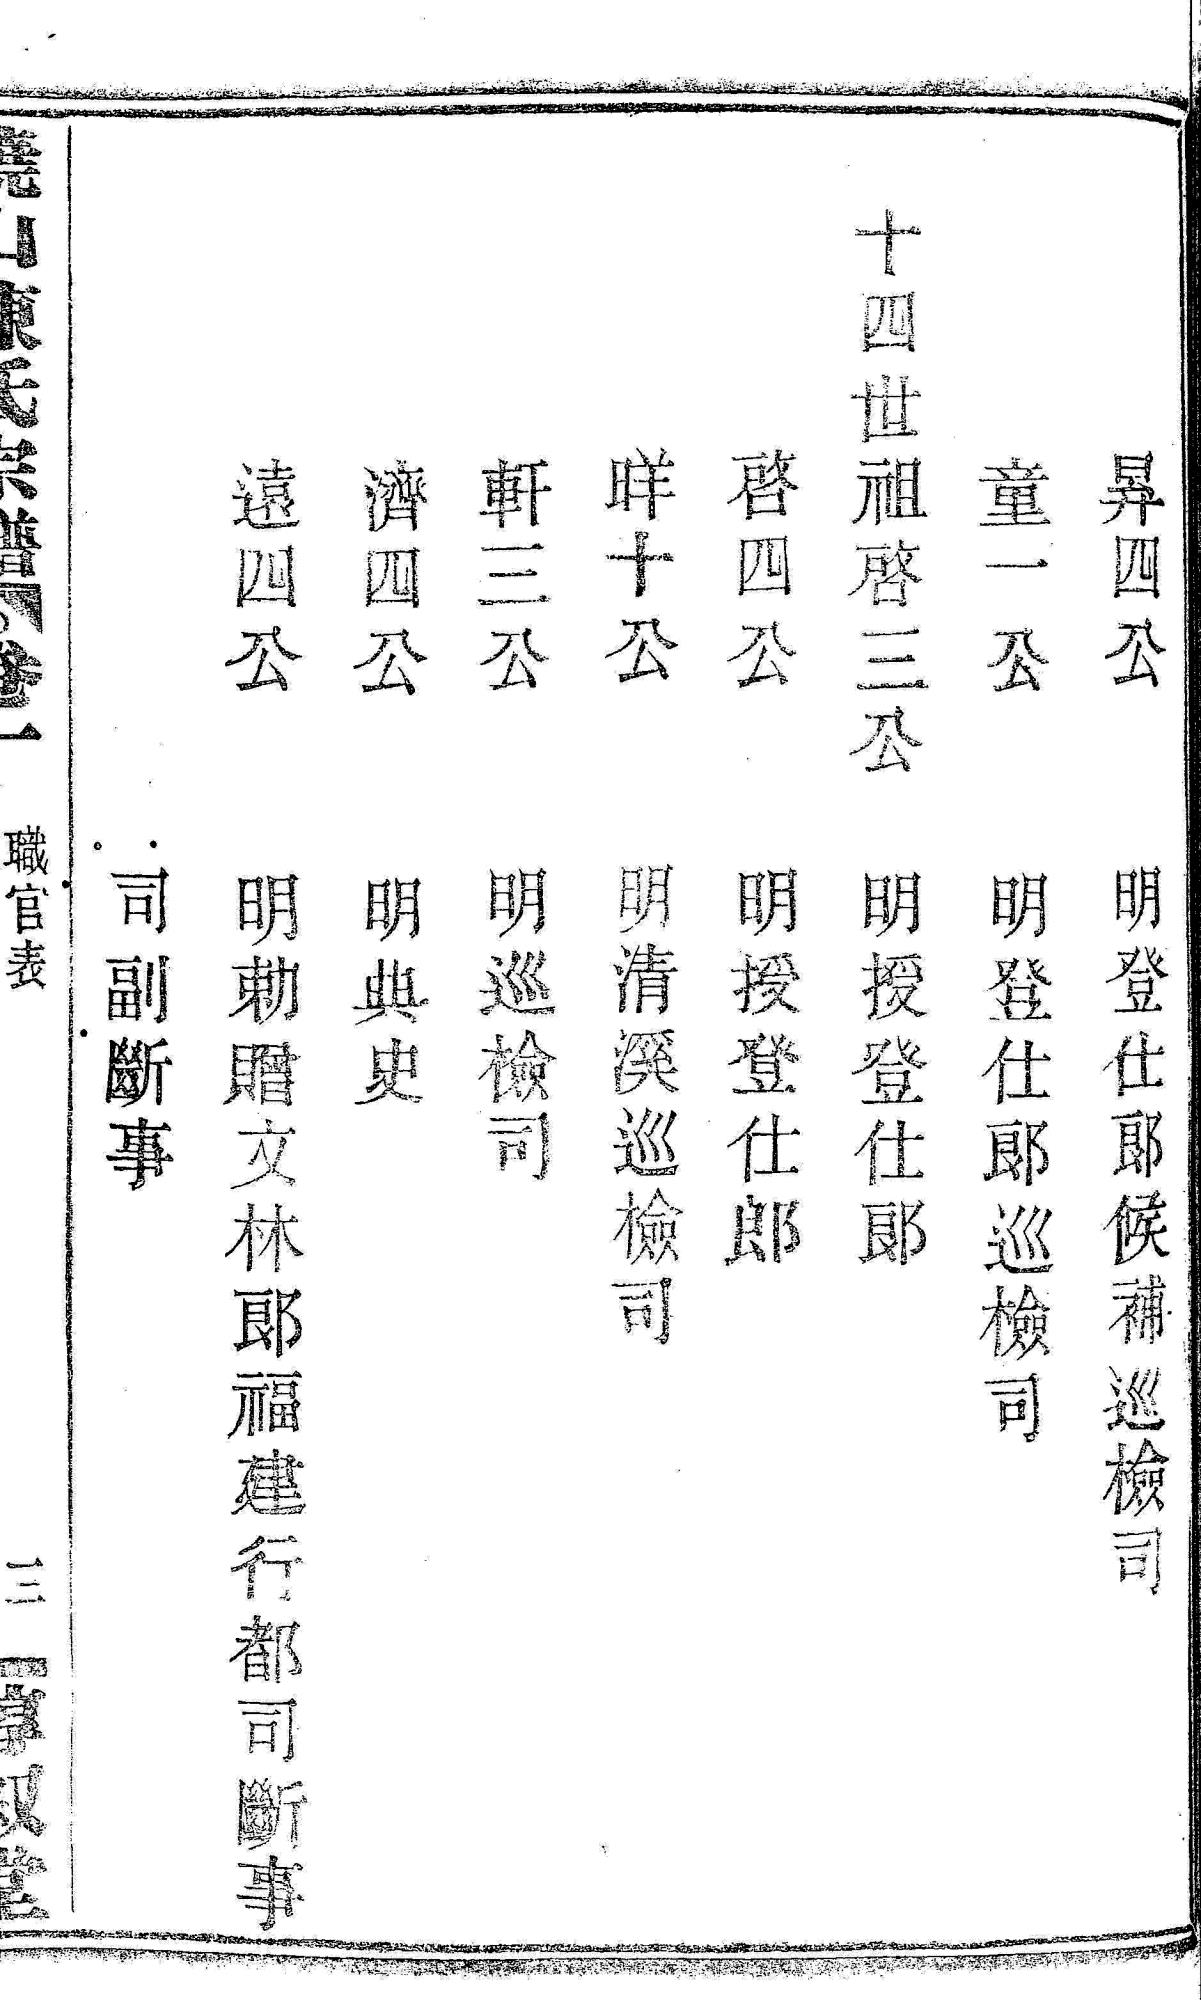 昇四公 明登仕郎候補巡檢司
童一公 明登仕郎巡檢司
十四世祖啓三公 明授登仕郎
啓四公 明授登仕郎
咩十公 明清溪巡檢司
軒三公 明巡檢司
濟四公 明典史
遠四公 明勅贈文林郎福建行都司斷事
司副斷事
山陳氏宗譜 卷一 職官表 三 堂